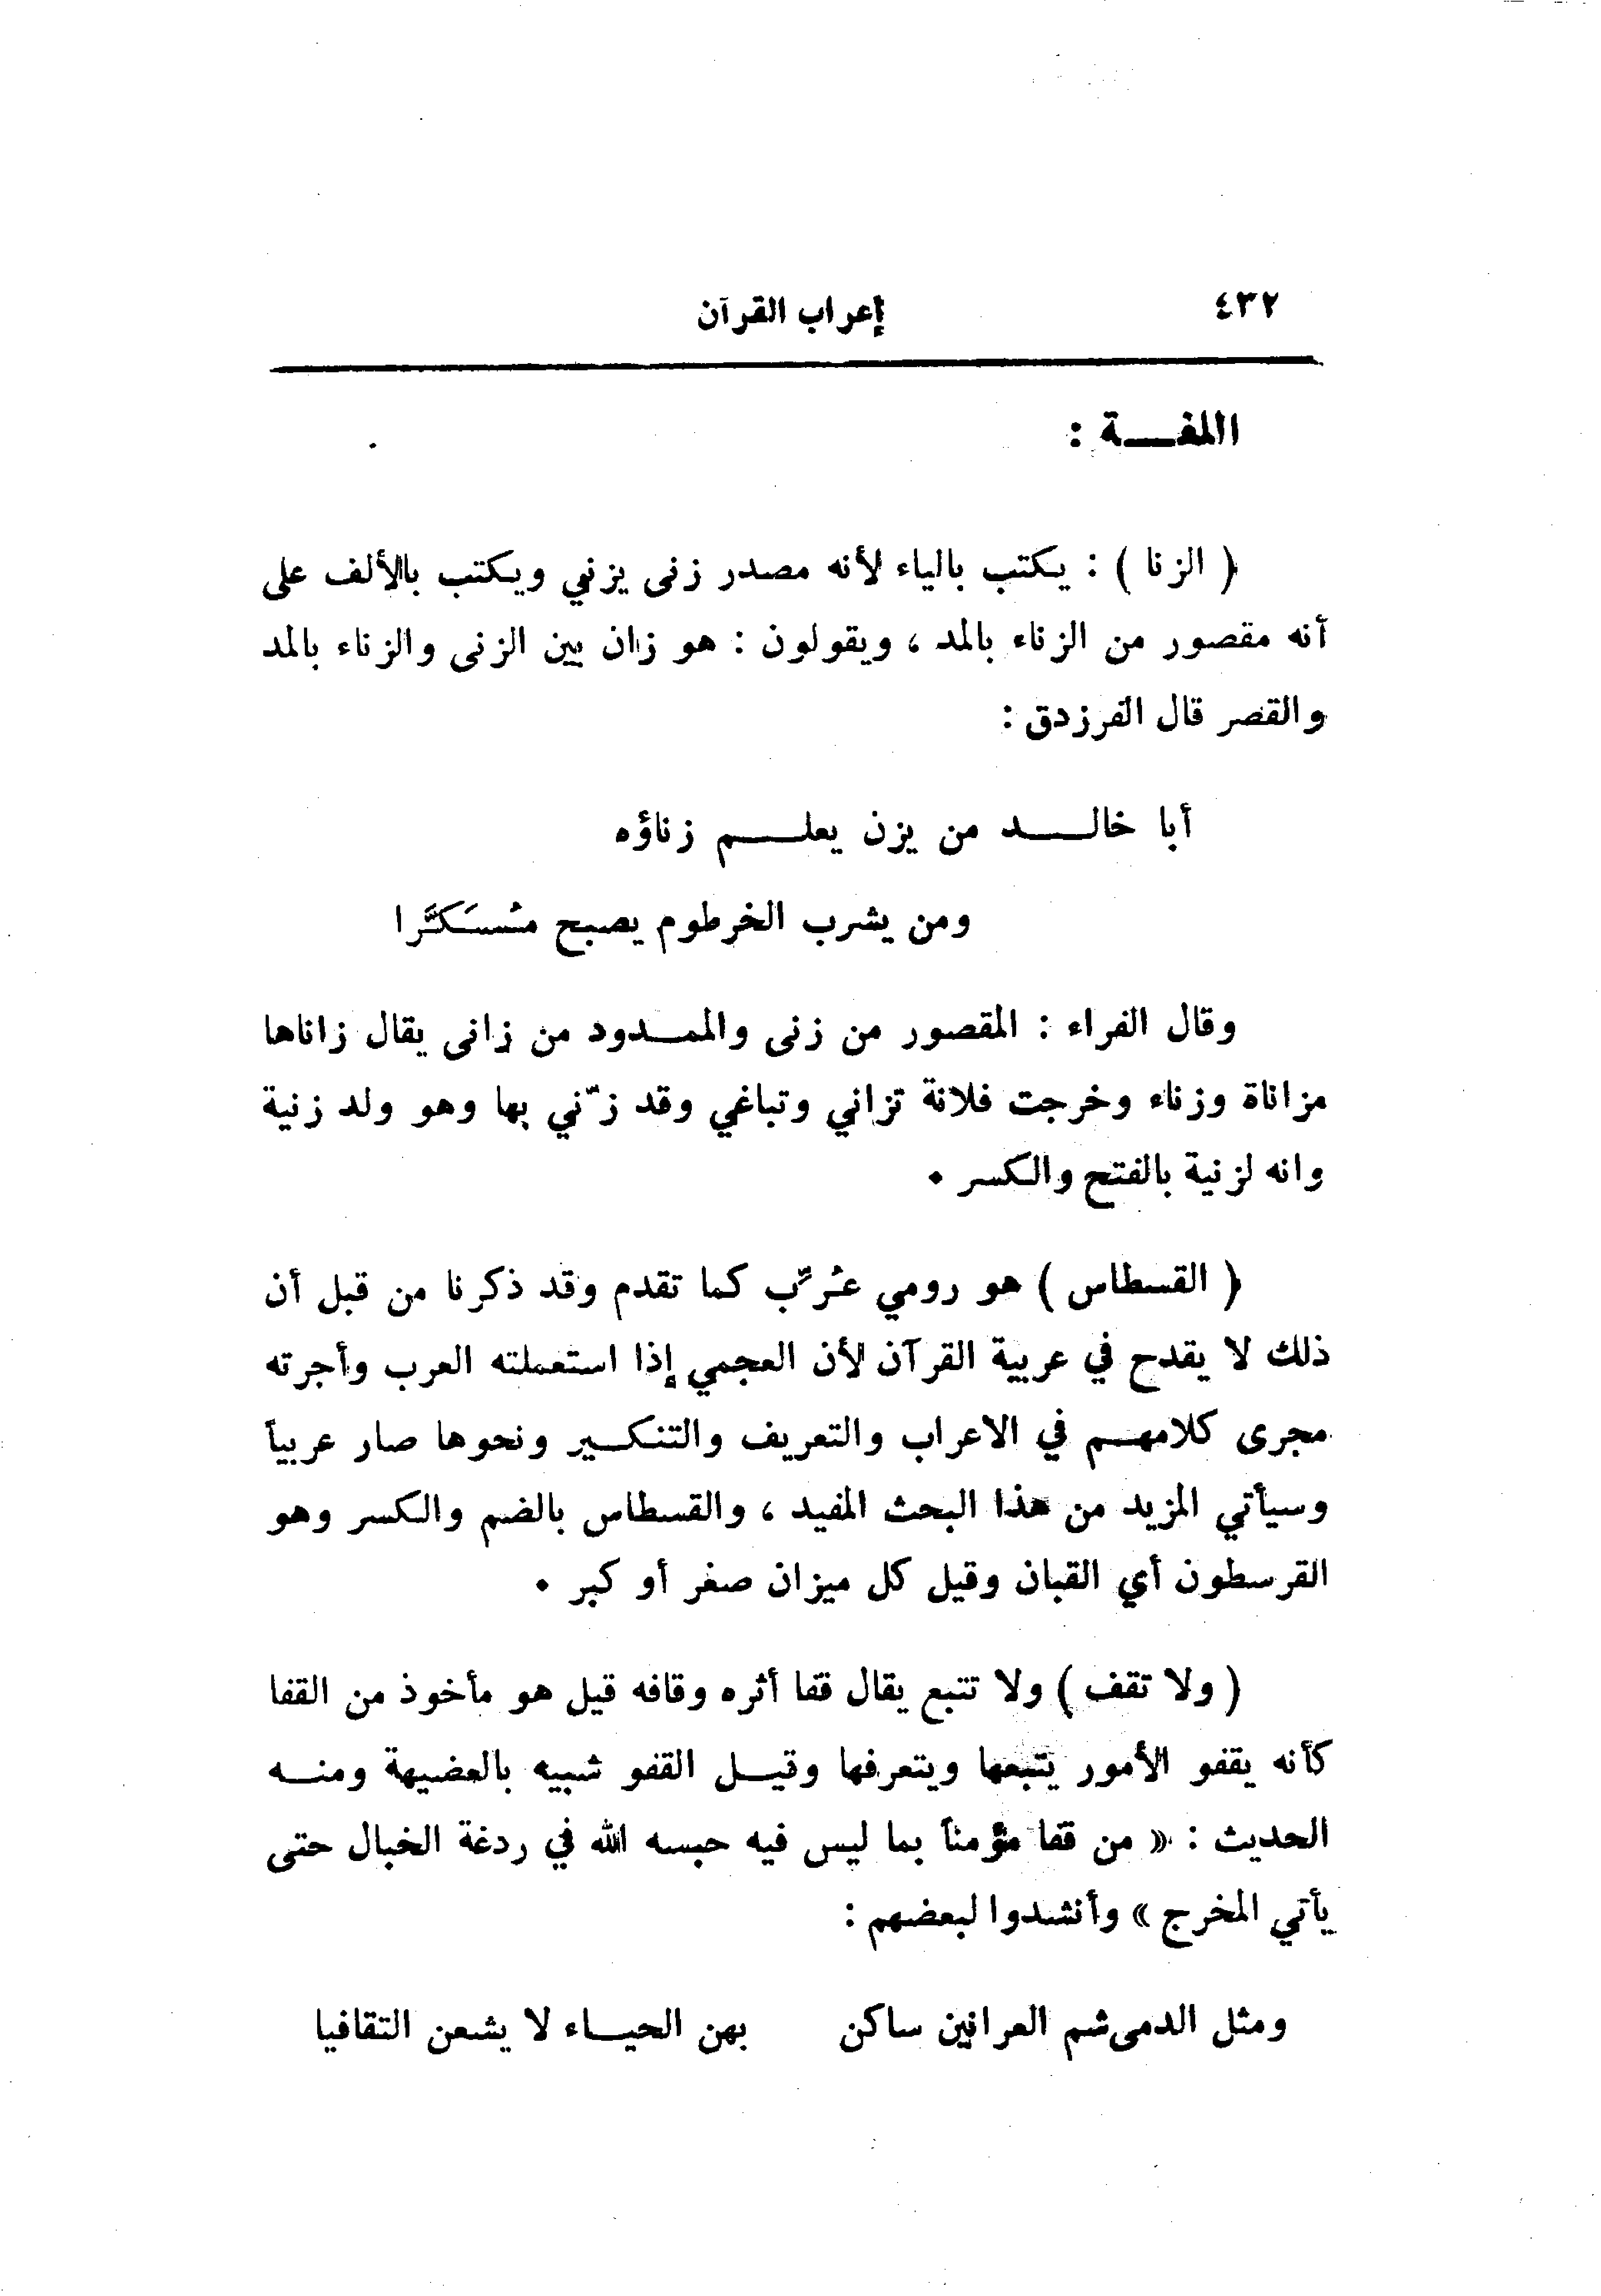 ٤٣٢
إعراب القرآن
اللغـــة :
( الزنا ) : يكتب بالياء لأنه مصدر زنى يزني ويكتب بالألف على
أنه مقصور من الزناء بالمد ، ويقولون : هو زان بين الزنى والزناء بالمد
والقصر قال الفرزدق :
أبا خالـــد من يزن يعلـــم زناؤه
ومن يشرب الخرطوم يصبح مُسَكَّرا
وقال الفراء : المقصور من زنى والممـدود من زانى يقال زاناها
مزاناة وزناء وخرجت فلانة تزاني وتباغي وقد زّني بها وهو ولد زنية
وانه لزنية بالفتح والكسر .
( القسطاس ) هو رومي عُرِّب كما تقدم وقد ذكرنا من قبل أن
ذلك لا يقدح في عربية القرآن لأن العجمي إذا استعملته العرب وأجرته
مجرى كلامهـم في الاعراب والتعريف والتنكـير ونحوها صار عربياً
وسيأتي المزيد من هذا البحث المفيد ، والقسطاس بالضم والكسر وهو
القرسطون أي القبان وقيل كل ميزان صغر أو كبر .
( ولا تقف ) ولا تتبع يقال قفا أثره وقافه قيل هو مأخوذ من القفا
كأنه يقفو الأمور يتبعها ويتعرفها وقيـل القفو شبيه بالعضيهة ومنـه
الحديث : « من قفا مؤمناً بما ليس فيه حبسه الله في ردغة الخبال حتى
يأتي المخرج » وأنشدوا لبعضهم :
ومثل الدمى شم العرانين ساكن بهن الحيـاء لا يشعن التقافيا